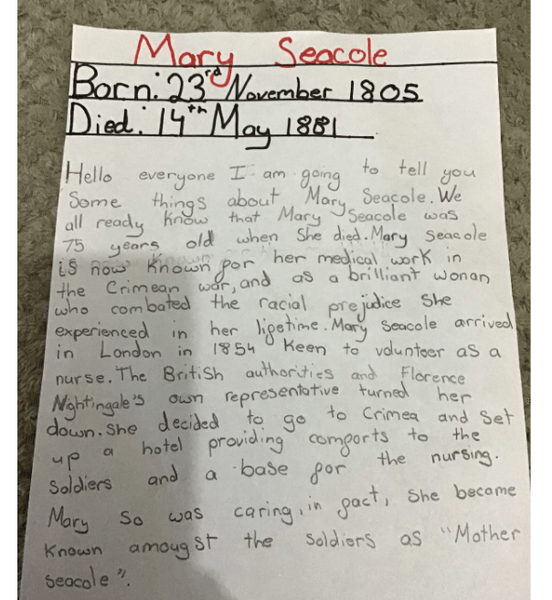 Mary Seacole
Born: 23rd November 1805
Died: 14th May 1881
Hello everyone I am going to tell you
Some things about Mary Seacole. We
all ready know that Mary Seacole was
75 years old when She died. Mary Seacole
is now known for her medical work in
the Crimean war, and as a brilliant wonan
who combated the racial prejudice She
experienced in her lifetime. Mary Seacole arrived
in London in 1854 Keen to volunteer as a
nurse. The British authorities and Florence
Nightingale's own representative turned her
down. She decided to go to Crimea and Set
up a hotel providing comforts to the
Soldiers and a base for the nursing.
Mary So was caring, in fact, She became
Known amougst the Soldiers as "Mother
Seacole".